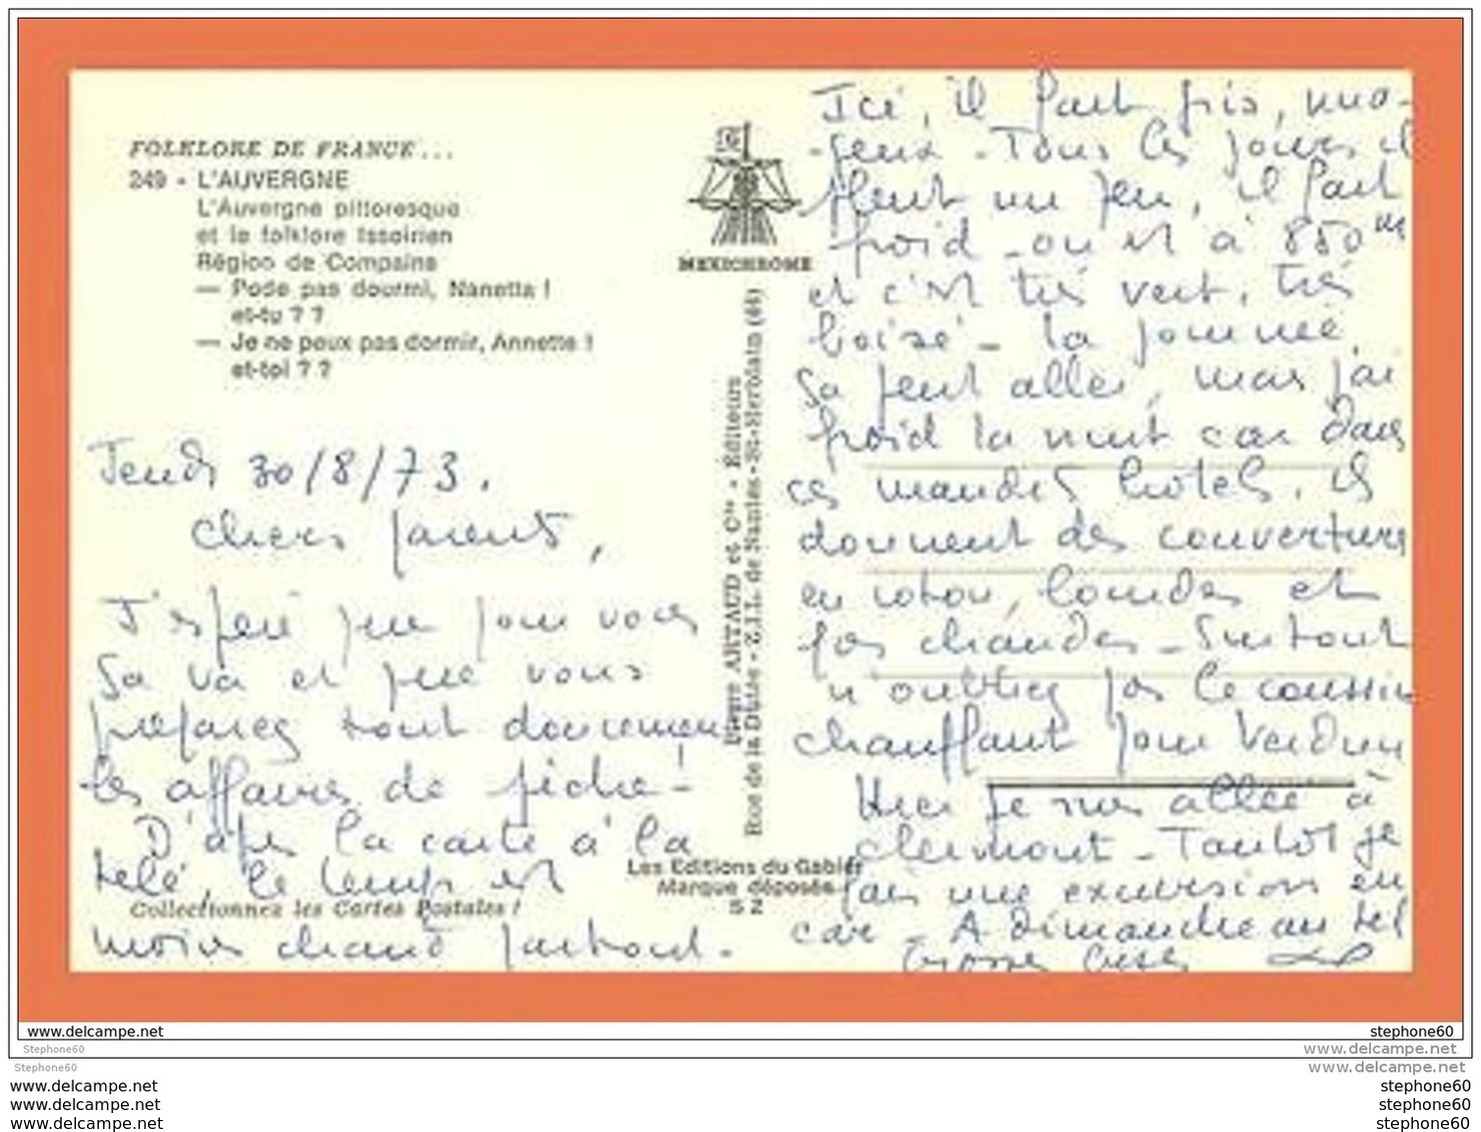 FOLKLORE DE FRANCE...
249 - L'AUVERGNE
L'Auvergne pittoresque
et le folklore Issoirien
Région de Compains
— Pode pas dourmi, Nanetta !
et-tu ? ?
— Je ne peux pas dormir, Annette !
et-toi ? ?
Jeudi 30/8/73.
Chers parents,
J'espère que pour vous
sa va et que vous
préparez tout doucement
les affaires de
D'après la carte à la
télé, le temps est
moins chaud partout.
Collectionnez les Cartes Postales !
MEXICHROME
Pierre ARTAUD et Cie - Editeurs
Rue de la Dutée - Z.I.L. de Nantes - St-Herblain (44)
Les Editions du Gabier
Marque déposée
S N
Ici, il fait gris, nua-
-geux - Tous les jours il
pleut un peu, il fait
froid - on est à 850 m
et c'est très vert, très
boisé - la journée
sa peut aller, mais j'ai
froid la nuit car dans
ces maudits hôtels, ils
donnent des couvertures
en coton, lourdes et
pas chaudes - Surtout
n'oubliez pas le coussin
chauffant pour Verdun
Hier je suis allée à
Clermont - Tantôt je
fais une excursion en
car - A dimanche au tel
Grosses bises
www.delcampe.net
stephone60
Stephone60
www.delcampe.net
Stephone60
www.delcampe.net
www.delcampe.net
stephone60
www.delcampe.net
stephone60
www.delcampe.net
stephone60